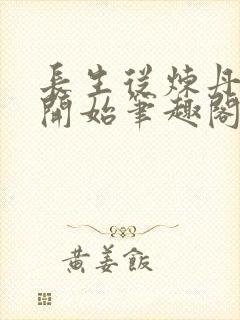 長生從煉丹
開始筆趣閣
黃姜飯